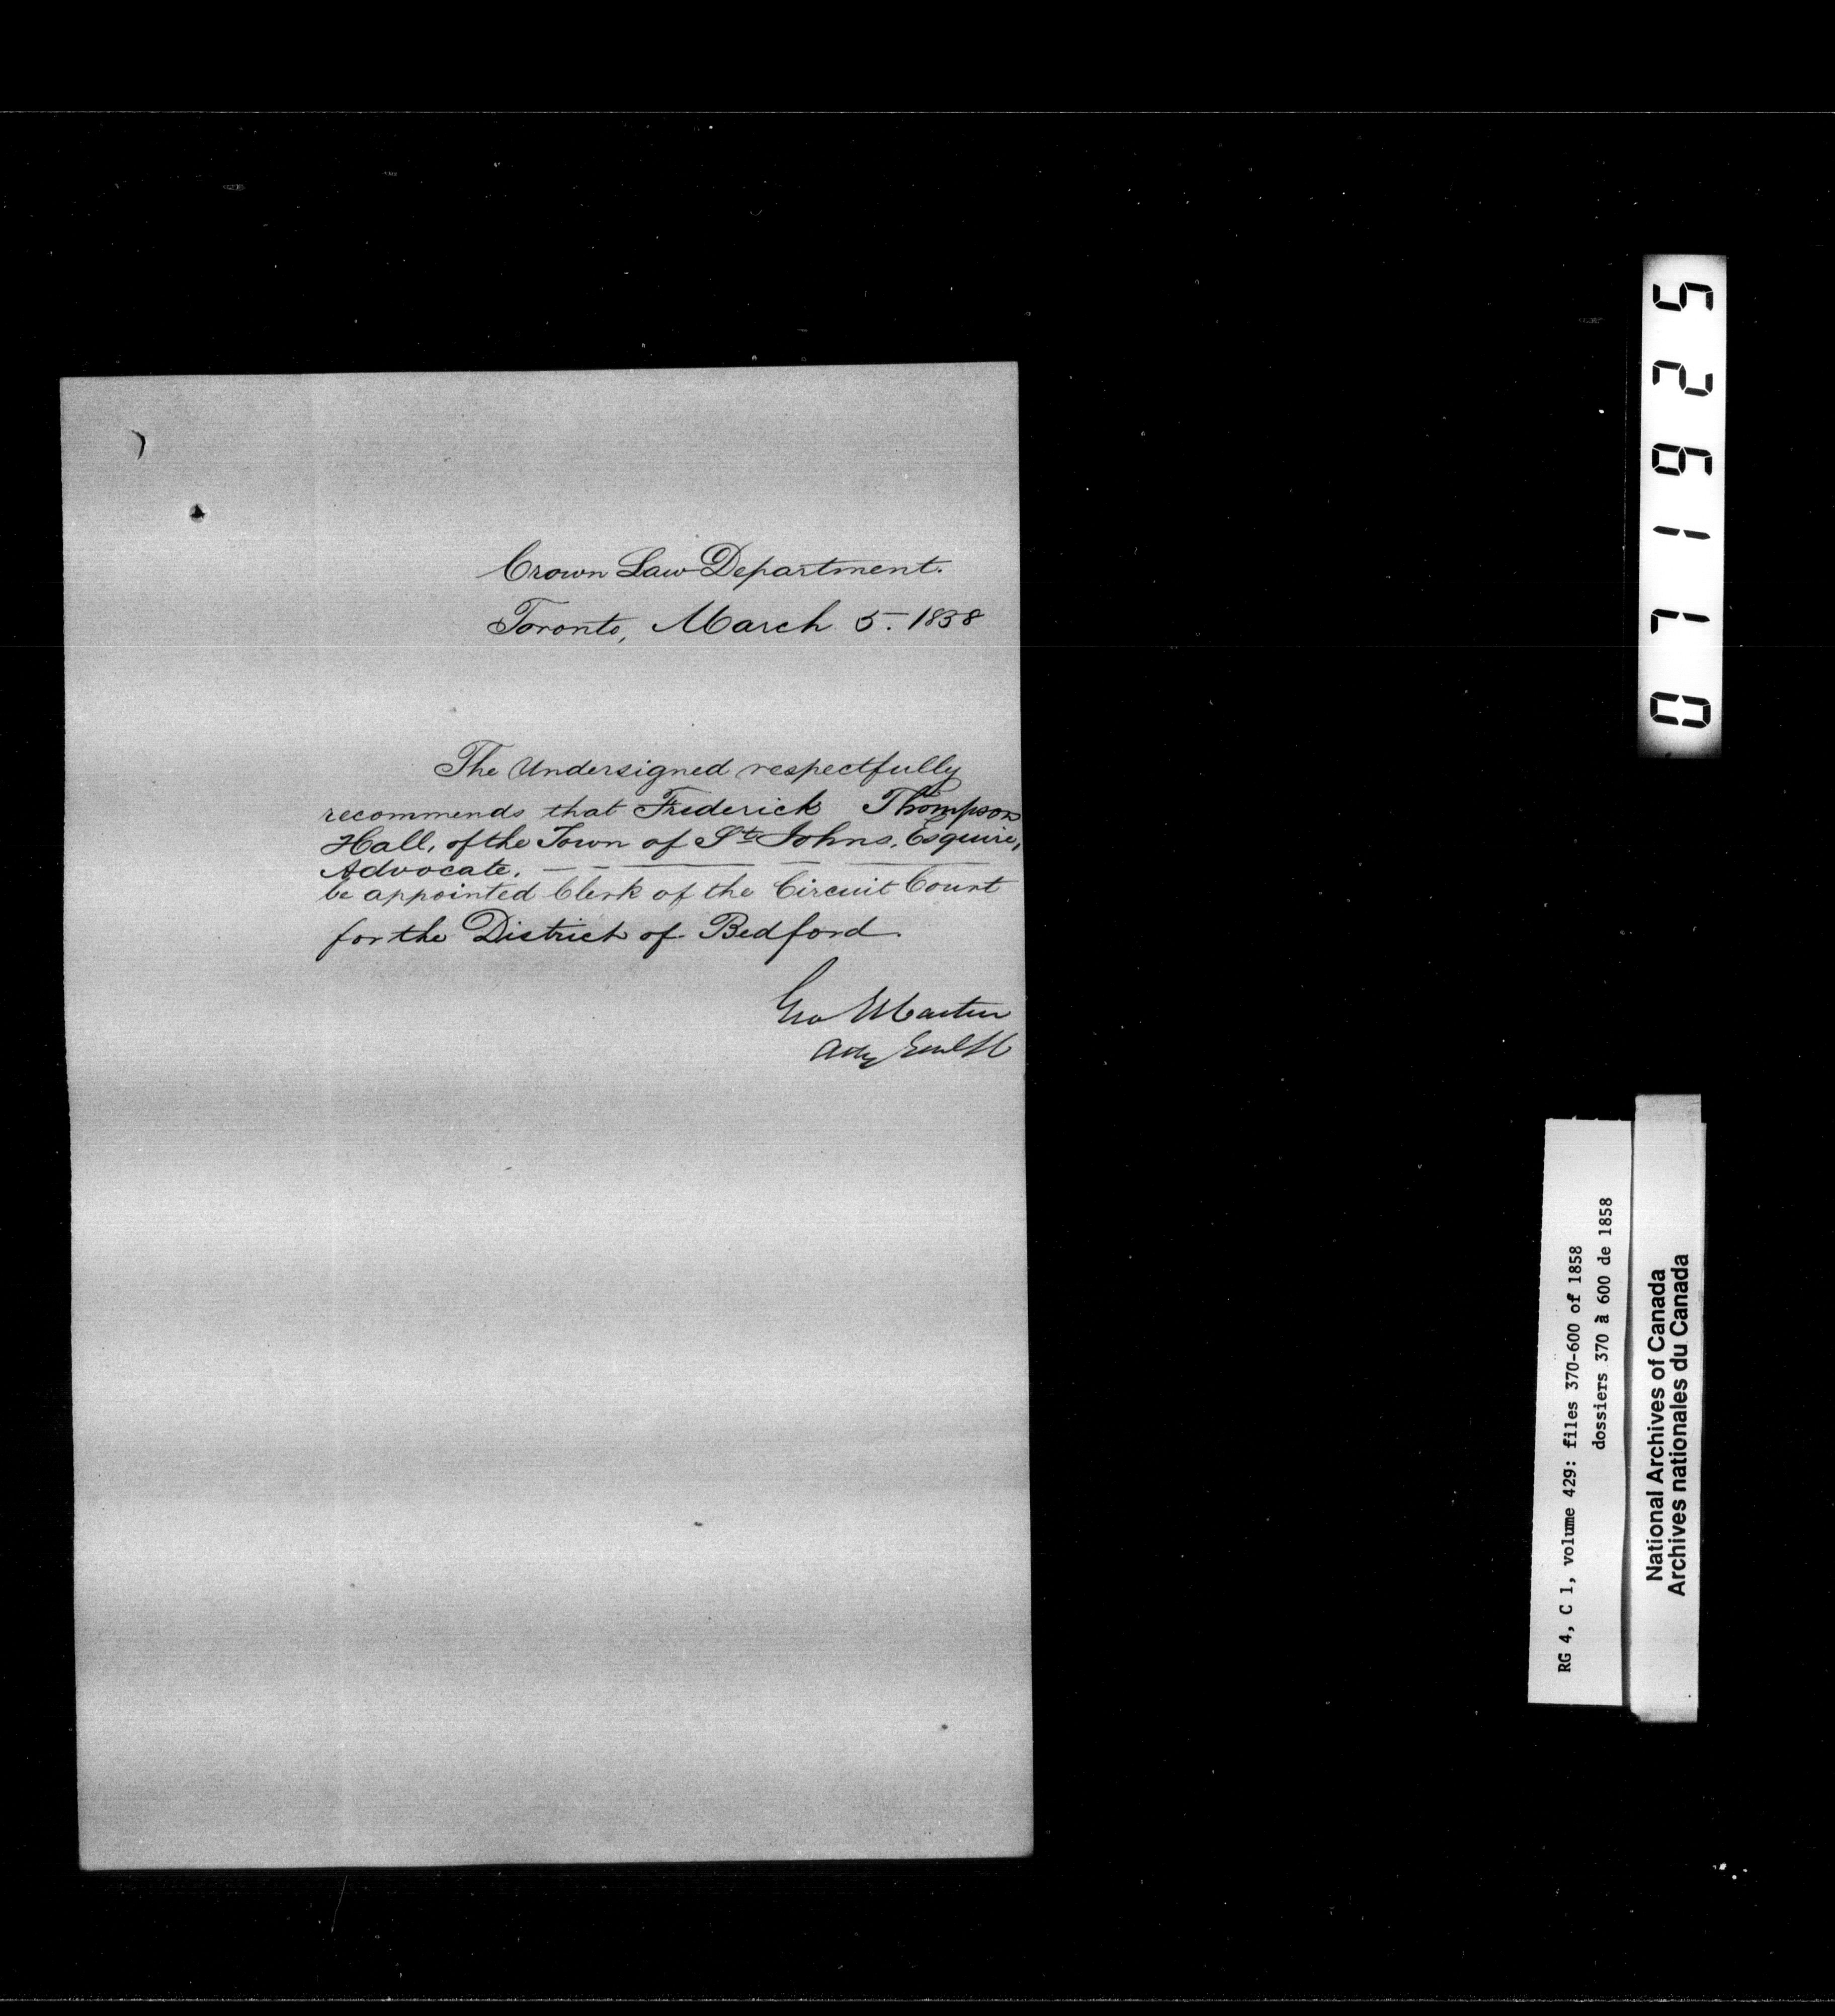 Crown Law Department.
Toronto, March 5. 1858
The Undersigned respectfully
recommends that Frederick Thompson
Hall, of the Town of St Johns, Esquire,
Advocate.
be appointed Clerk of the Circuit Court
for the District of Bedford.
Geo Et Cartier
Atty Genl LC
071925
RG 4, C 1, volume 429: files 370-600 of 1858
dossiers 370 à 600 de 1858
National Archives of Canada
Archives nationales du Canada